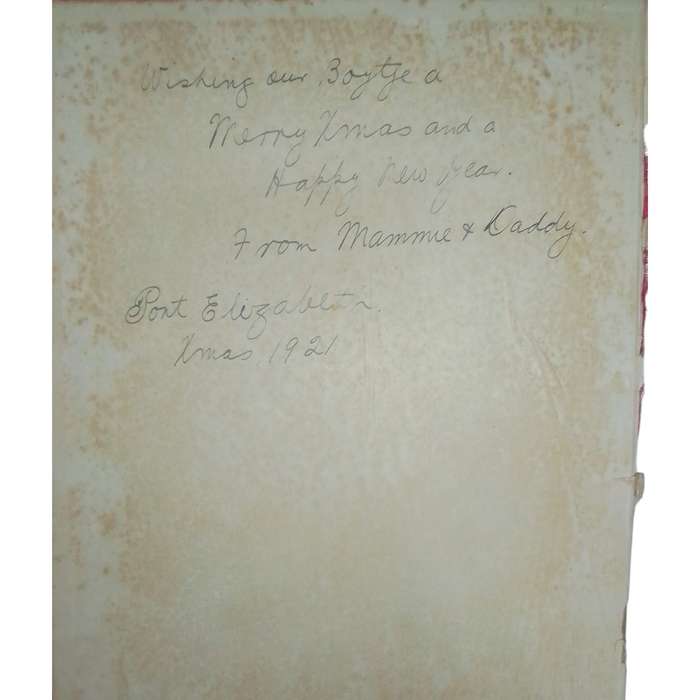 Wishing our Boytje a
Merry Xmas and a
Happy New Year.
From Mammie & Daddy.
Port Elizabeth.
Xmas 1921